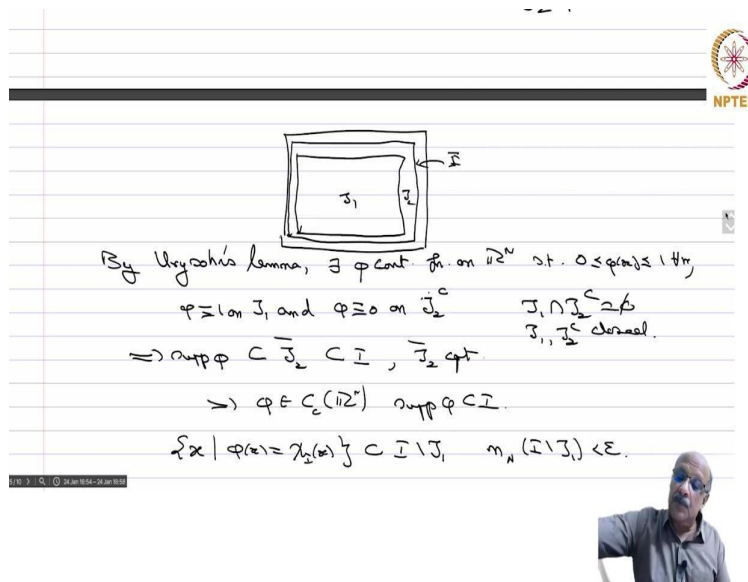 NPTE
Ī
J₁
J₂
By Urysohn's lemma, ∃ φ cont. fn. on ℝᴺ s.t. 0 ≤ φ(x) ≤ 1 ∀x,
φ ≡ 1 on J₁ and φ ≡ 0 on J₂ᶜ J₁ ∩ J₂ᶜ = ∅
J₁, J₂ᶜ closed.
⇒ supp φ ⊂ J̄₂ ⊂ I, J̄₂ cpt
⇒ φ ∈ C_c(ℝᴺ) supp φ ⊂ I.
{x | φ(x) = χ_I(x)} ⊂ I \ J₁ m_N(I \ J₁) < ε.
5/10 24 Jan 16:54 – 24 Jan 16:58